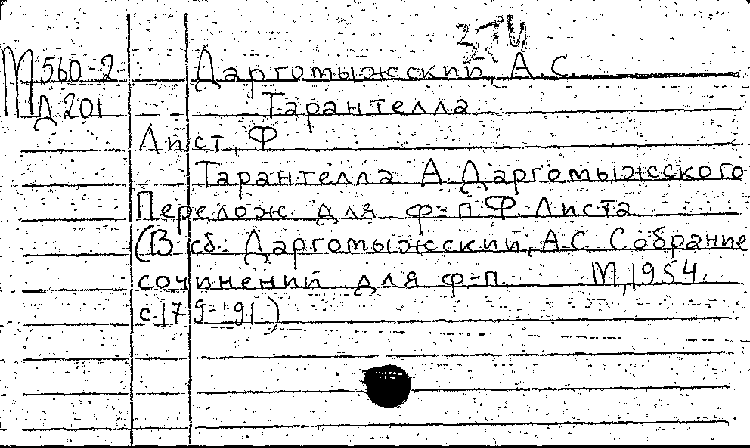 М560-2 Даргомыжский, А.С.
Д201 Тарантелла
Лист, Ф
Тарантелла А. Даргомыжского
Перелож. для ф-п Ф Листа
(В сб: Даргомыжский, А.С. Собрание
сочинений для ф-п. М, 1954.
с 179-91)